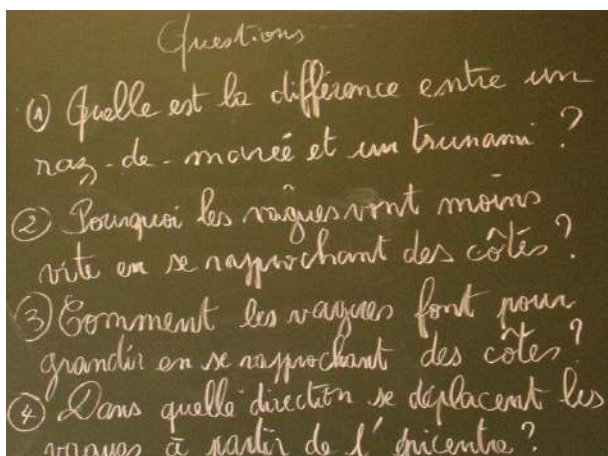 Questions
① Quelle est la différence entre un
raz-de-marée et un tsunami ?
② Pourquoi les vagues vont moins
vite en se rapprochant des côtés ?
③ Comment les vagues font pour
grandir en se rapprochant des côtes ?
④ Dans quelle direction se déplacent les
vagues à partir de l'épicentre ?